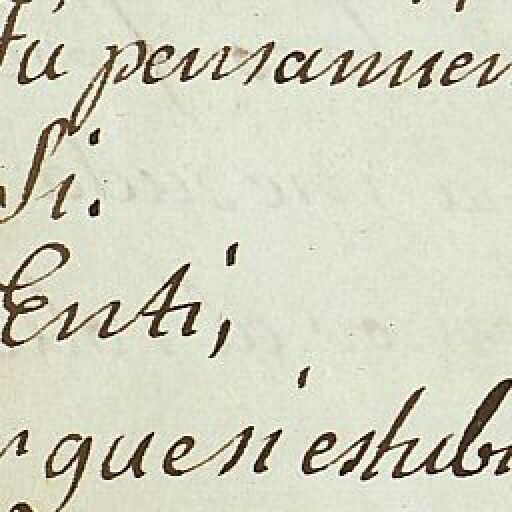 Tu pensamien
Si.
Enti,
r que si estubi